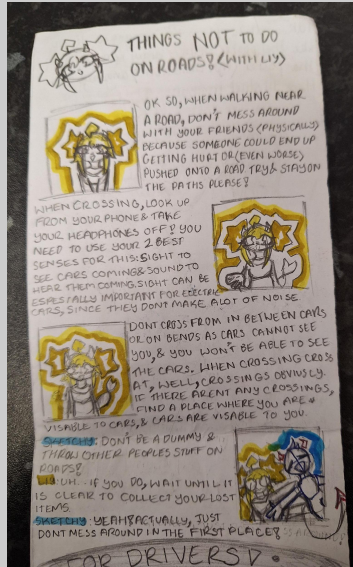 THINGS NOT TO DO
ON ROADS! (WITH LIY)
OK SO, WHEN WALKING NEAR
A ROAD, DON'T MESS AROUND
WITH YOUR FRIENDS (PHYSICALLY)
BECAUSE SOMEONE COULD END UP
GETTING HURT OR (EVEN WORSE)
PUSHED ONTO A ROAD TRY & STAY ON
THE PATHS PLEASE!
WHEN CROSSING, LOOK UP
FROM YOUR PHONE & TAKE
YOUR HEADPHONES OFF! YOU
NEED TO USE YOUR 2 BEST
SENSES FOR THIS: SIGHT TO
SEE CARS COMING & SOUND TO
HEAR THEM COMING. SIGHT CAN BE
ESPESIALLY IMPORTANT FOR ELECTRIC
CARS, SINCE THEY DONT MAKE ALOT OF NOISE
DONT CROSS FROM IN BETWEEN CARS
OR ON BENDS AS CARS CANNOT SEE
YOU, & YOU WON'T BE ABLE TO SEE
THE CARS. WHEN CROSSING CROSS
AT, WELL, CROSSINGS OBVIUSLY.
IF THERE ARENT ANY CROSSINGS,
FIND A PLACE WHERE YOU ARE
VISABLE TO CARS, & CARS ARE VISABLE TO YOU.
SKETCHY: DON'T BE A DUMMY &
THROW OTHER PEOPLES STUFF ON
ROADS!
LIY: UH.. IF YOU DO, WAIT UNTIL IT
IS CLEAR TO COLLECT YOUR LOST
ITEMS.
SKETCHY: YEAH! ACTUALLY, JUST
DONT MESS AROUND IN THE FIRST PLACE!
FOR DRIVERS